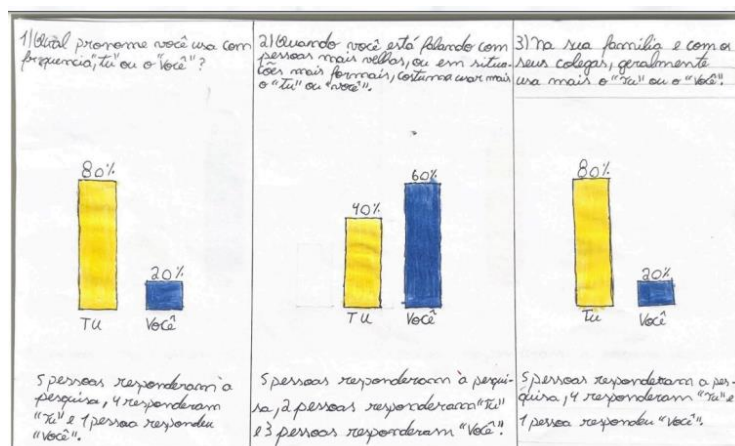 1) Qual pronome você usa com
frequencia, "tu" ou o "você"?
80%
20%
TU
Você
5 pessoas responderam a
pesquisa, 4 responderam
"Tu" e 1 pessoa respondeu
"Você".
2) Quando você está falando com
pessoas mais velhas, ou em situa-
ções mais formais, costuma usar mais
o "Tu" ou "você".
40%
60%
TU
Você
5 pessoas responderam à pesqui-
sa, 2 pessoas responderam "Tu"
e 3 pessoas responderam "Você".
3) Na sua família e com os
seus colegas, geralmente
usa mais o "Tu" ou o "Você".
80%
20%
Tu
Você
5 pessoas responderam a pes-
quisa, 4 responderam "Tu" e
1 pessoa respondeu "Você".